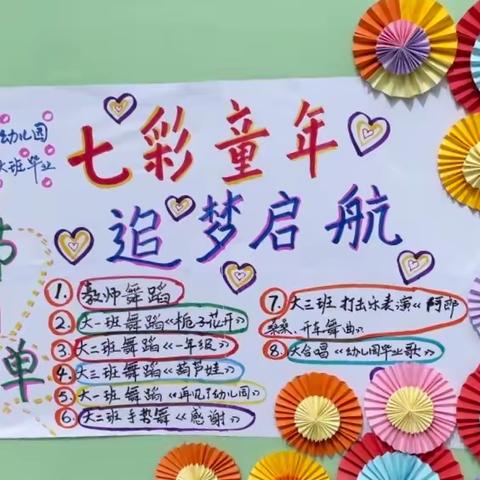 七彩童年
幼儿园
大班毕业
追梦启航
节
单
1. 教师舞蹈
2. 大一班舞蹈《栀子花开》
3. 大二班舞蹈《一年级》
4. 大三班舞蹈《葫芦娃》
5. 大一班舞蹈《再见了幼儿园》
6. 大二班手势舞《感谢》
7. 大三班打击乐表演《阿郎
桑桑、开车舞曲》
8. 大合唱《幼儿园毕业歌》